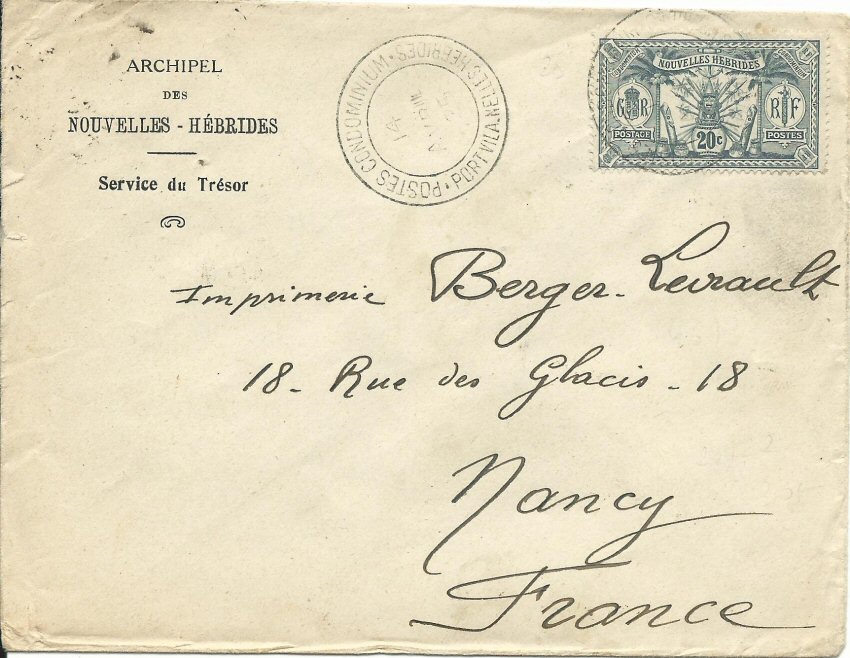 ARCHIPEL
DES
NOUVELLES - HÉBRIDES
Service du Trésor
POSTES CONDOMINIUM · PORT VILA · NELLES HEBRIDES ·
14
AVRIL
25
NOUVELLES HEBRIDES
G R
R F
POSTAGE
20c
POSTES
Imprimerie Berger-Levrault
18 - Rue des Glacis - 18
Nancy
France